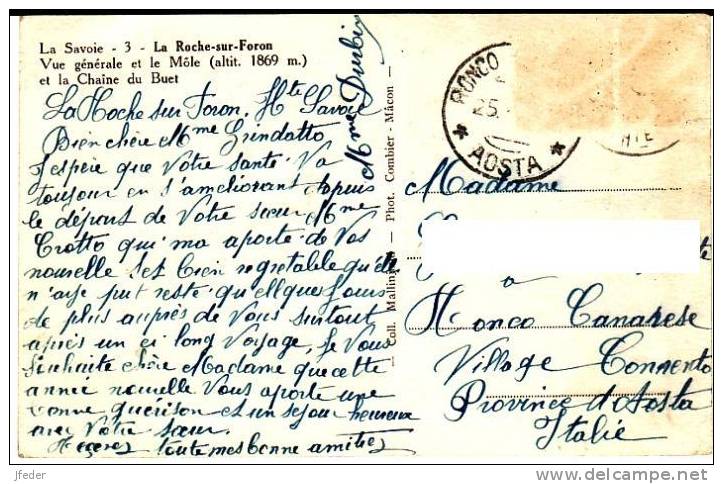 La Savoie - 3 - La Roche-sur-Foron
Vue générale et le Môle (altit. 1869 m.)
et la Chaîne du Buet
La Roche sur Foron, Hte Savoie
Bien chère Mme Grindatto
J'espère que Votre santé Va
toujour en s'améliorant depuis
le départ de Votre sœur Mme
Crotto qui ma aporté de Vos
nouvelle ses bien regretable qu'elle
n'aye put resté quellque jours
de plus auprès de Vous surtout
après un ci long Voyage, Je Vous
souhaite chère Madame que cette
année nouvelle Vous aporte une
bonne guérison et un sejour heureux
avec Votre sœur.
toute mes bonne amitiez
Mme Durbin
Coll. Phot. Combier - Mâcon
RONCO
25
AOSTA
Madame
à
Ronco Canavese
Village Convento
Province d'Aosta
Italie
jfeder
www.delcampe.net